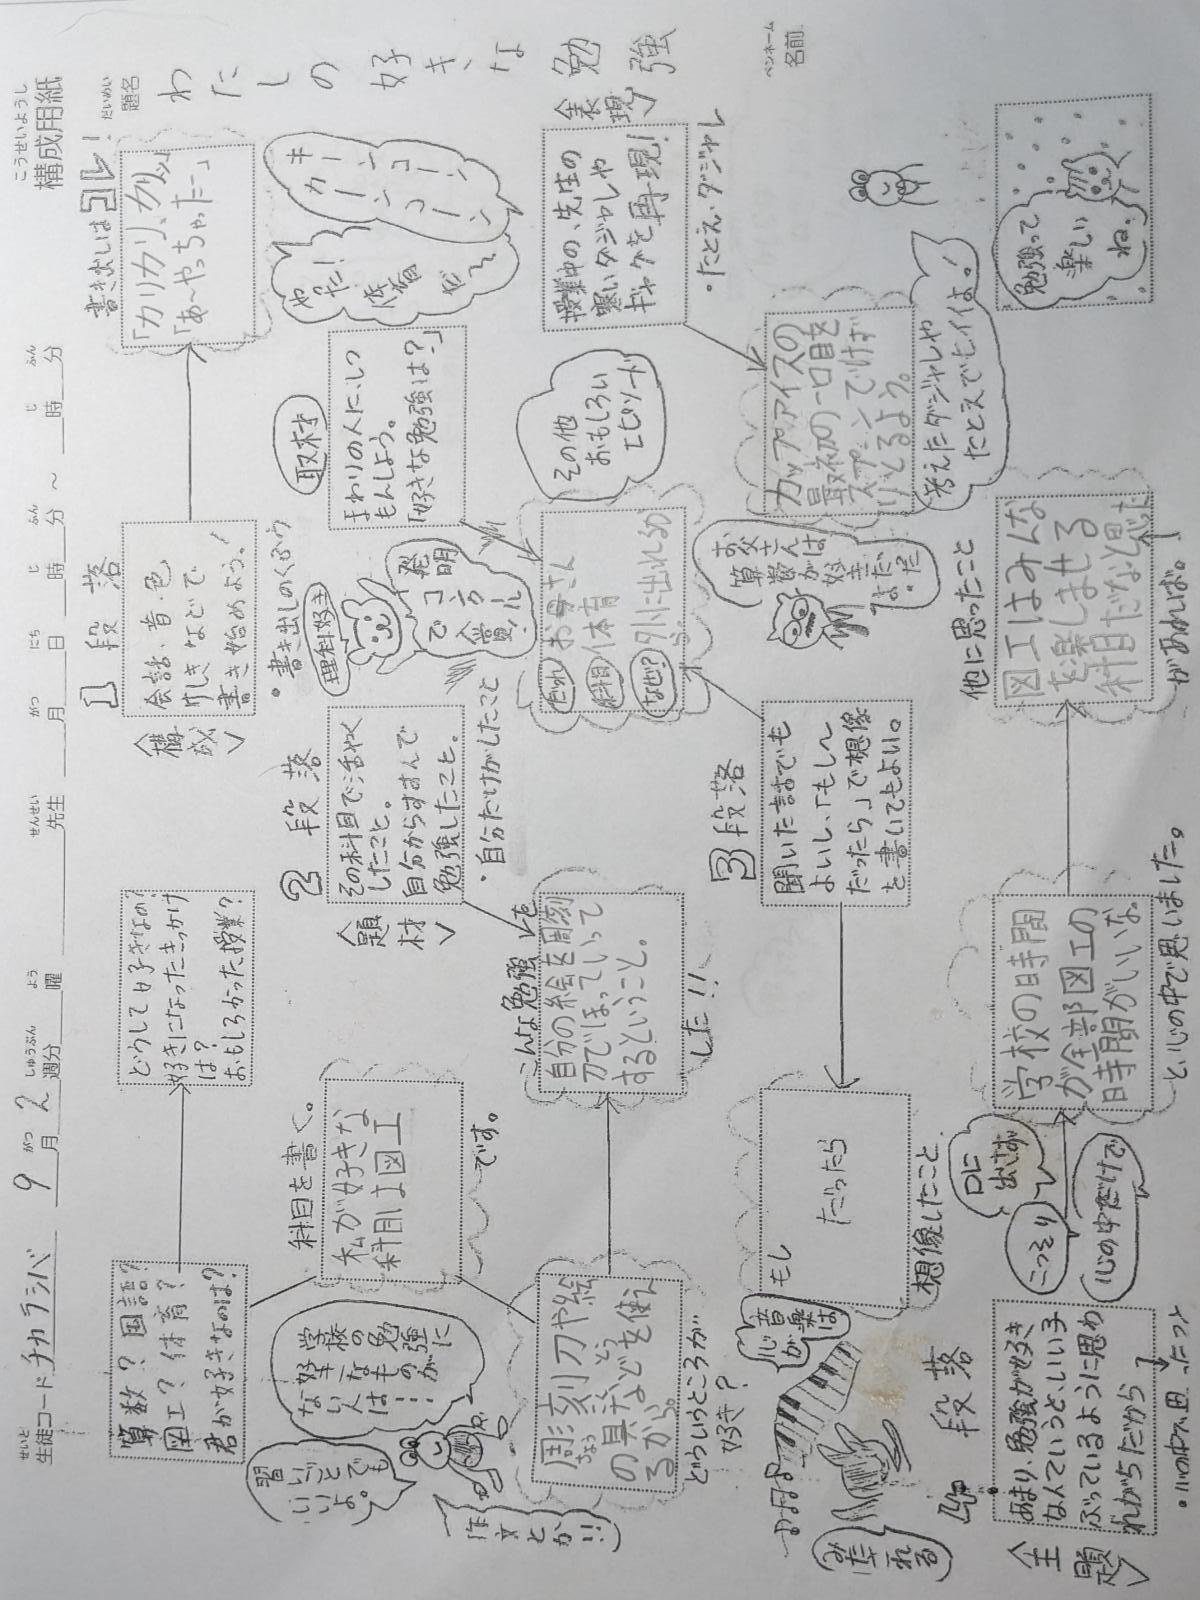 こうせいようし
構成用紙
せいと
生徒コード チカラシバ 9月2週分 曜 先生 月 日 時 分 ～ 時 分
がつ しゅうぶん よう せんせい がつ にち じ ふん じ ふん
だいめい
題名
わたしの好きな勉強
ペンネーム
名前
1段落
〈構成〉
・書き出しのくふう
会話・音・色
けしきなどで
書き始めよう！
書き出しはコレ！
「カリカリ、カリッ」
「あ～やっちゃったー」
算数？国語？
図工？体育？
君が好きなのは？
どうして好きなの？
好きになったきっかけ
は？
おもしろかった授業？
キーンコーン
カーンコーン
やった！
体育
だ～
学校の勉強に
好きなものが
ない人は…
習いごとでも
いいよ。
作文とか!!
科目を書く。
私が好きな
科目は図工
です。
2段落
〈題材〉
その科目で活やく
したこと。
自分からすすんで
勉強したこと。
・自分だけがしたこと
取材
まわりの人にしつ
もんしよう。
「好きな勉強は？」
理科好き
発明
コンクール
で入賞！
その他
おもしろい
エピソード
〈表現〉
授業中の、先生の
寒いダジャレや
ギャグを再現！
・たとえ・ダジャレ
彫刻刀や絵
の具などを使え
るから。
どういうところが
好き？
こんな勉強を
自分の絵を周刻
刀でほっていって
するということ。
した！！
だれ お母さん
科目 体育
なぜ？ 外に出れるから
カップアイスの
最初の一口目を
スプーンでけず
りとるよう。
考えたダジャレや
たとえでヒイイよ！
お父さんは
算数が好き
だ。
3段落
聞いた話でも
よいし、「もし～
だったら」で想像
を書いてもよい。
もし
だったら
想像したこと
音楽は
心が
みだれる
4段落
〈主題〉
あまり、勉強が好き
なんていうと、いい子
ぶっているように思わ
れがちだから
こっそり
口に
出さず
心の中だけで
学校の時間
が全部図工の
時間がいいな。
と、心の中で思いました。
他に思ったこと
図工はみんな
を楽しませる
科目だなと思った
があれば。
勉強って
楽しい
ね。